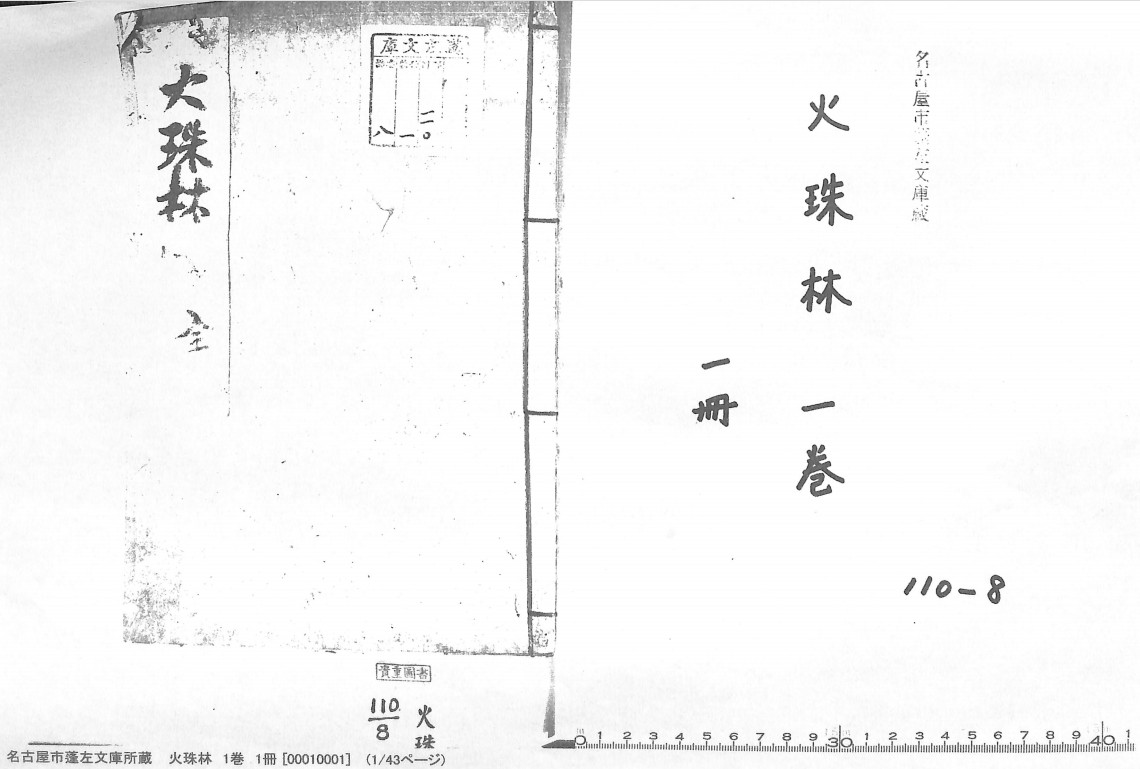 名古屋市蓬左文庫蔵
火珠林 一巻
一冊
110-8
蓬左文庫
一一〇
一
八
火珠林
全
貴重圖書
110
8
火珠
0 1 2 3 4 5 6 7 8 9 30 1 2 3 4 5 6 7 8 9 40 1
名古屋市蓬左文庫所蔵 火珠林 1巻 1冊 [00010001] (1/43ページ)